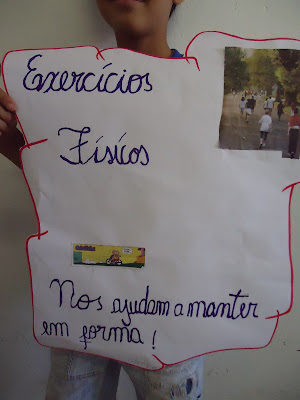 Exercícios
Físicos
Nos ajudam a manter
em forma!